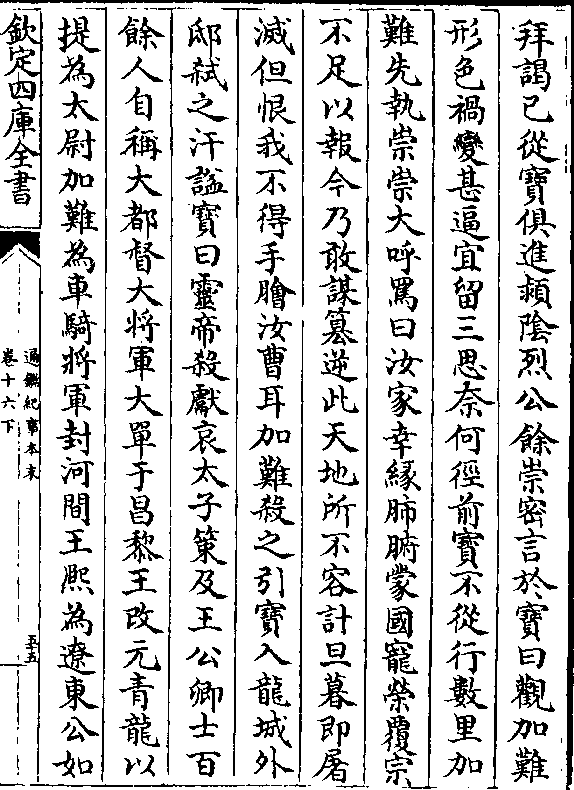 拜謁已從寶俱進頴陰烈公餘崇密言於寶曰觀加難
形色禍變甚逼宜留三思奈何徑前寶不從行數里加
難先執崇崇大呼罵曰汝家幸緣肺腑蒙國寵榮覆宗
不足以報今乃敢謀篡逆此天地所不容計旦暮即屠
滅但恨我不得手膾汝曹耳加難殺之引寶入龍城外
邸弑之汗諡寶曰靈帝殺獻哀太子策及王公卿士百
餘人自稱大都督大將軍大單于昌黎王改元青龍以
提為太尉加難為車騎將軍封河間王熈為遼東公如
欽定四庫全書
通鑑紀事本末
卷十六下
五十五